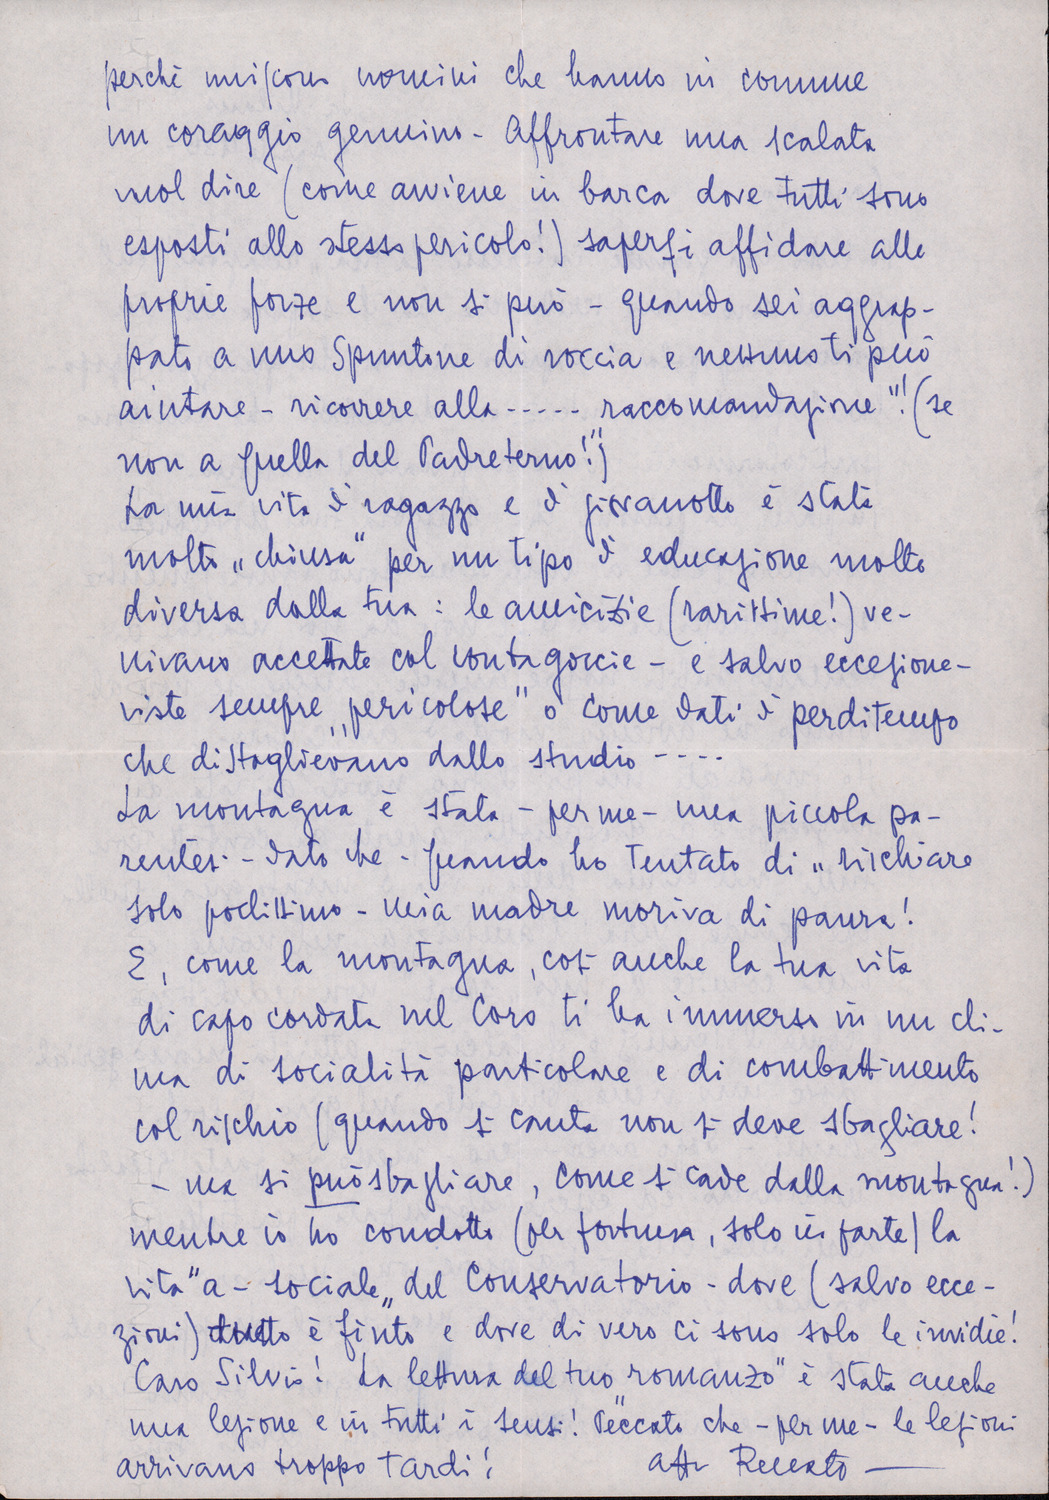 perchè uniscono uomini che hanno in comune
un coraggio genuino - Affrontare una scalata
vuol dire (come avviene in barca dove tutti sono
esposti allo stesso pericolo!) sapersi affidare alle
proprie forze e non si può - quando sei aggrap-
pato a uno spuntone di roccia e nessuno ti può
aiutare - ricorrere alla ----- raccomandazione"! (se
non a quella del Padreterno!")
La mia vita di ragazzo e di giovanotto è stata
molto „chiusa" per un tipo di educazione molto
diversa dalla tua : le amicizie (rarissime!) ve-
nivano accettate col contagoccie - e salvo eccezione-
viste sempre „pericolose" o come dati di perditempo
che distoglievano dallo studio ----
La montagna è stata - per me - una piccola pa-
rentesi - dato che - quando ho tentato di „rischiare
solo pochissimo - mia madre moriva di paura!
E, come la montagna, così anche la tua vita
di capo cordata nel Coro ti ha immerso in un cli-
ma di socialità particolare e di combattimento
col rischio (quando si canta non si deve sbagliare!
- ma si può sbagliare, come si cade dalla montagna!)
mentre io ho condotto (per fortuna, solo in parte) la
vita "a - sociale„ del Conservatorio - dove (salvo ecce-
zioni) tutto è finto e dove di vero ci sono solo le invidie!
Caro Silvio! La lettura del tuo „romanzo" è stata anche
una lezione e in tutti i sensi! Peccato che - per me - le lezioni
arrivano troppo tardi! aff. Renato